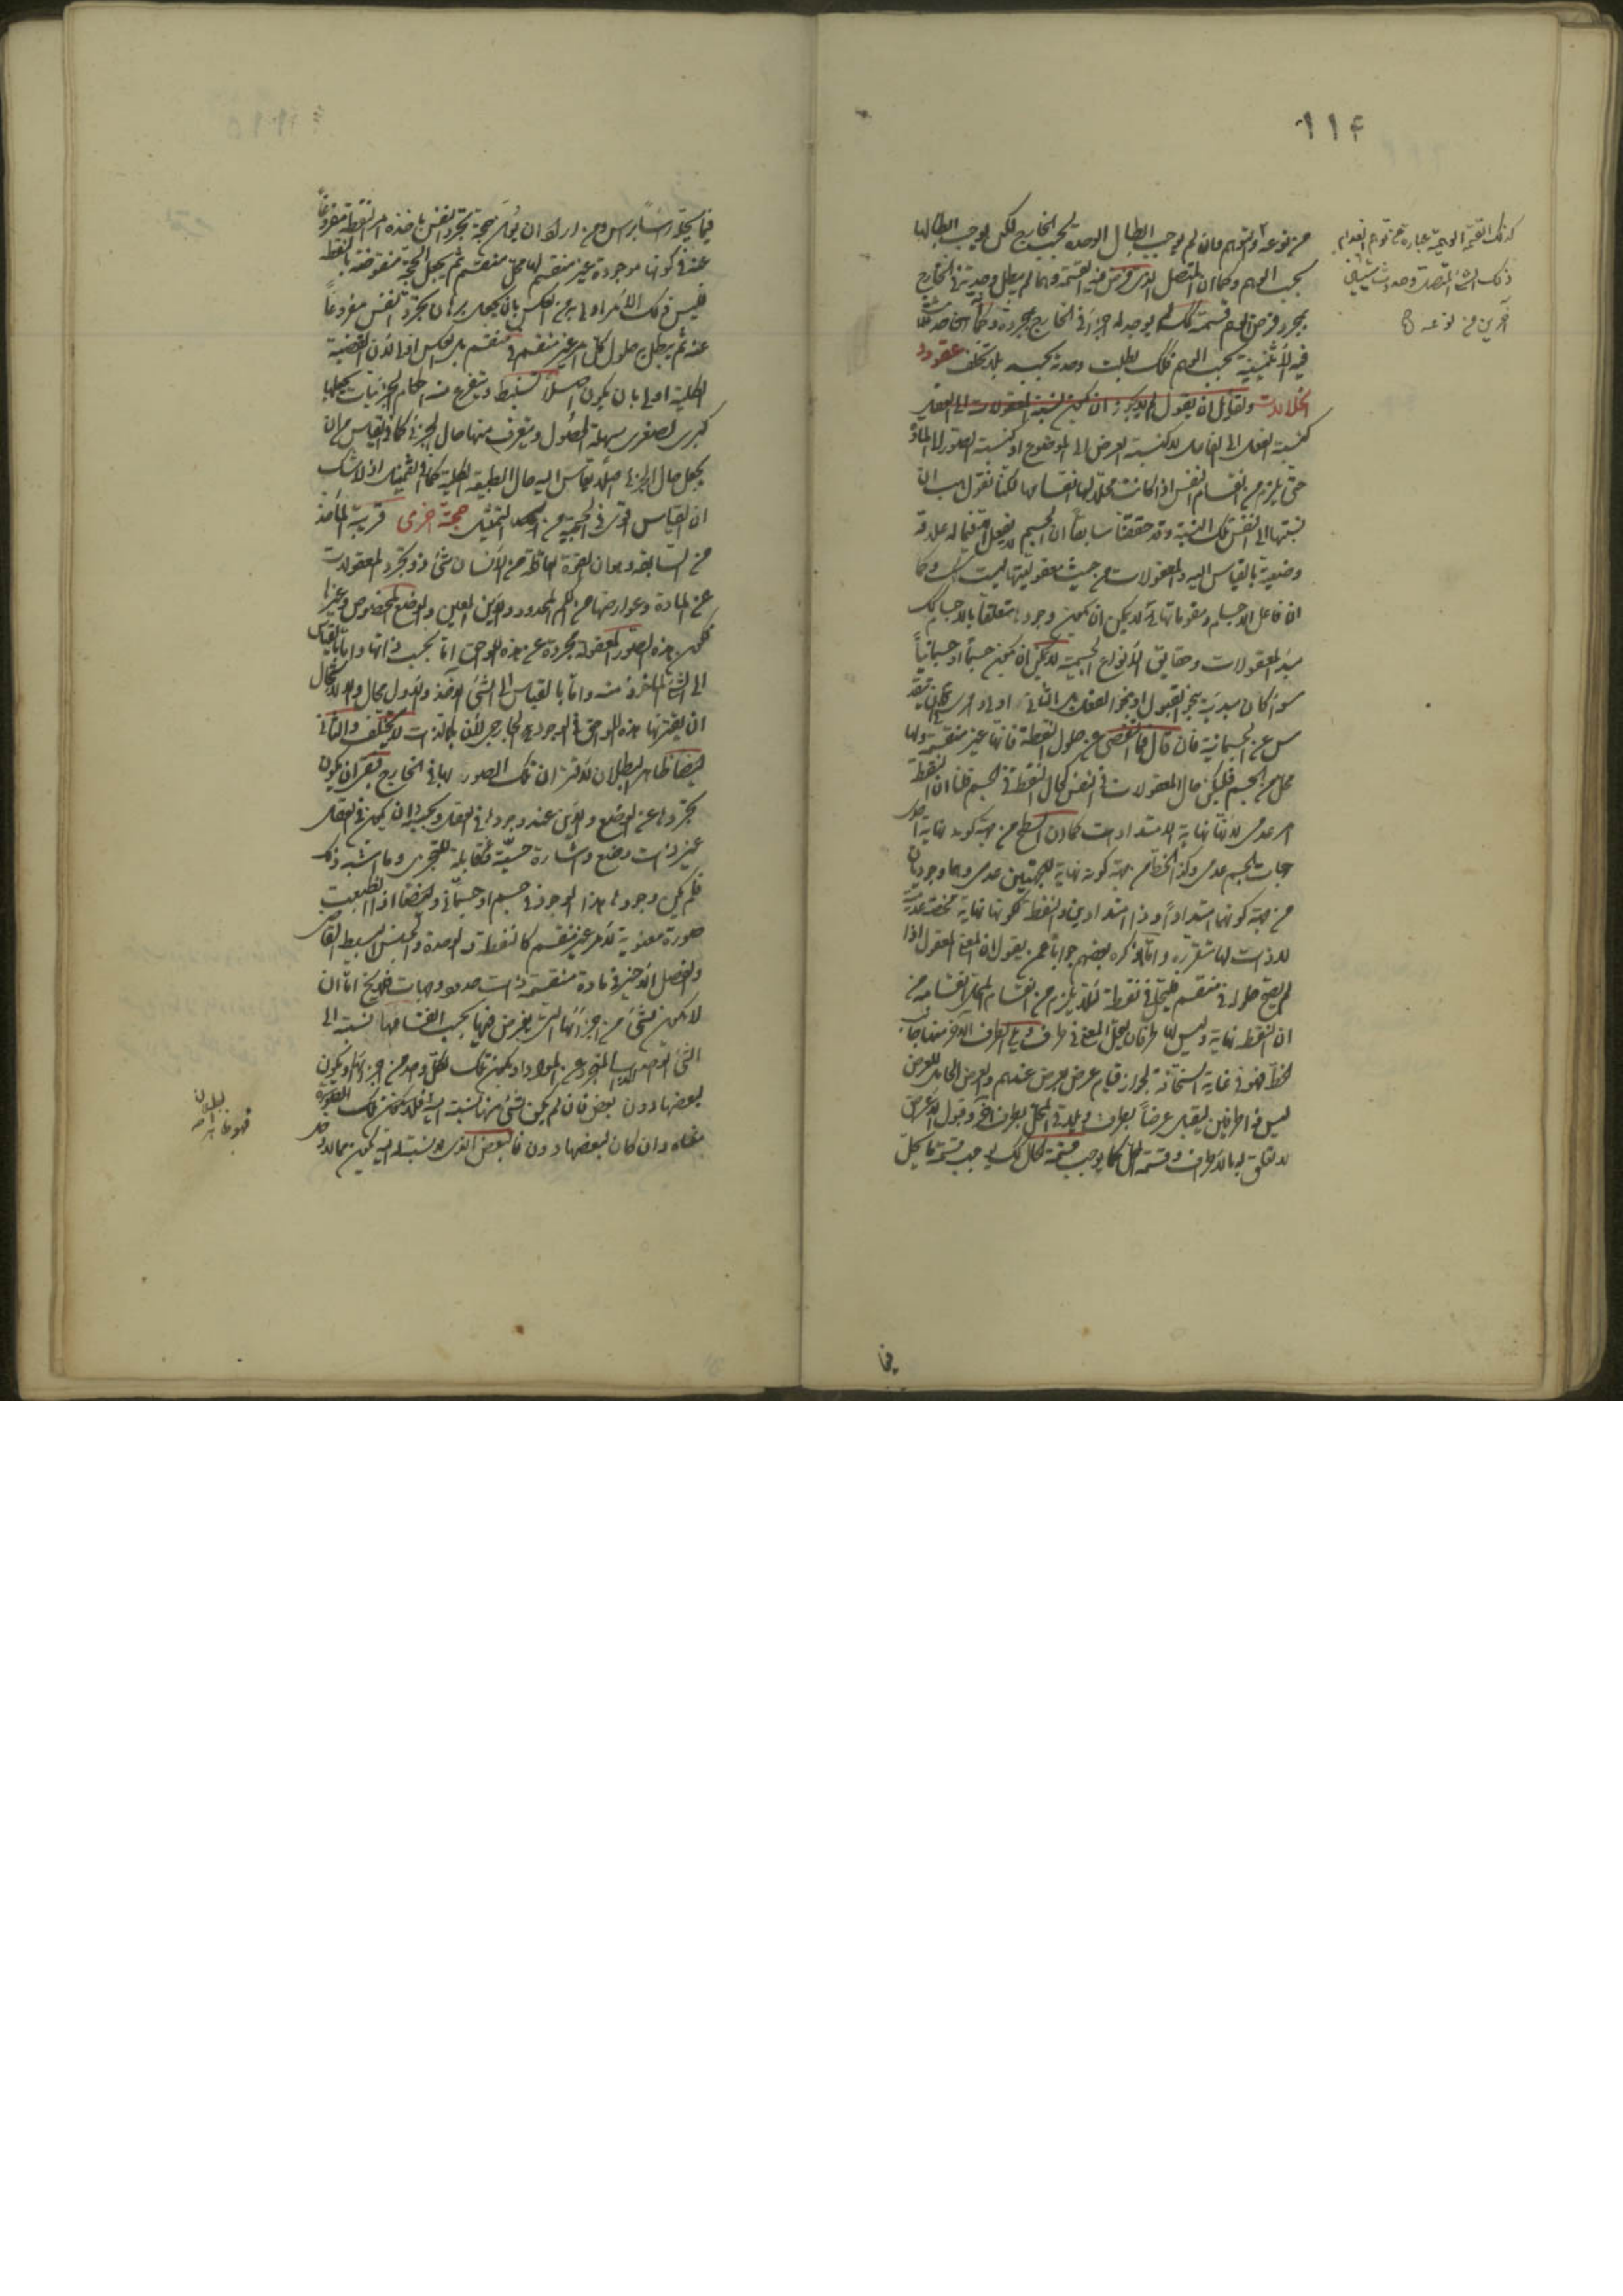 ١١٤
كذلك القسمة الوهمية عبارة عن توهم انعدام
ذلك الشئ المتصل وحدوث شيئين
آخرين من نوعه
من نوعه والتوهم فان لم يوجب ابطال الوحدة بحسب الخارج لكن يوجب ابطالها
بحسب الوهم وكما ان المتصل الذى فرض فيه القسمة وهما لم يبطل وحدته فى الخارج
بمجرد فرض الوهم قسمته كك لم يوجد له اجزاء فى الخارج بمجرده وكما
فيه الأثنينية بحسب الوهم فكك بطلت وحدته بحسبه بلا تخلف عقود و
انحلالات ولقائل ان يقول لم لا يجوز ان يكون نسبة المعقولات الى العقل
كنسبة الفعل الى الفاعل لا كنسبة العرض الى الموضوع او كنسبة الصورة الى المادة
حتى يلزم من انقسام النفس اذا كانت محلا لها انقسامها لكنا نقول هب ان
نسبتها الى النفس تلك النسبة وقد حققنا سابقا ان الجسم لا يفعل الا فيما له علاقة
وضعية بالقياس اليه والمعقولات من حيث معقوليتها ليست كك وكما
ان فاعل الاجسام ومقوماتها لا يمكن ان يكون وجوده متعلقا بالاجسام كك
مبدأ المعقولات وحقايق الأنواع الجسمية لا يمكن ان يكون جسما او جسمانيا
سواء كان مبدئيته بنحو القبول او بنحو الفعل بل الثانى اولى
عن الجسمانية فان قال فما التفصى عن حلول النقطة فانها غير منقسمة ولها
محل من الجسم فليكن حال المعقولات فى النفس كحال النقطة فى الجسم قلنا ان النقطة
امر عدمى لأنها نهاية الامتداد كما ان السطح من جهة كونه نهاية احد
جهات الجسم عدمى وكذا الخط من جهة كونه نهاية للجهتين عدمى وهما وجوديان
من جهة كونهما امتدادا وذا امتدادين والنقطة لكونها نهاية محضة عدمية
لا ذات لها متقررة وما ذكره بعضهم جوابا عمن يقول ان المعنى المعقول اذا
لم يصح حلوله فى منقسم فليحل فى نقطة لئلا يلزم من انقسام المحل انقسامه من
ان النقطة نهاية وليس لها طرفان ليحل المعنى فى طرف ويلى الطرف الآخر منها جانب
الخط فهو فى غاية السخافة لجواز قيام عرض بعرض عندهم والعرض الحامل للعرض
ليس ذا طرفين ليقبل عرضا بطرف ويلاقى المحل بطرف آخر وقبول العرض
لا تعلق له بالاطراف وقسمة المحل كما يوجب قسمة الحال كك يوجب قسمة ما يحل
فيما
فيما يحله
عنه فى كونها موجودة غير منقسم لها محل منقسم ثم يجعل الحجة منقوضة بالنقطة
فليس ذلك الأمر اولى من العكس بان يجعل برهان تجرد النفس مفروغا
عنه ثم يبطل حلول كل امر غير منقسم فى منقسم بل العكس اولى لأن القضية
الكلية اولى بان يكون اصلا يستنبط ويتفرع منه احكام الجزئيات بجعلها
كبرى لصغرى سهلة الحصول ويتعرف منها حال الجزئى كما فى القياس من ان
يجعل حال الجزئى اصلا يقاس اليه حال الطبيعة الكلية كما فى التمثيل اذ لا شك
ان القياس اقوى فى الحجية من التمثيل حجة اخرى قريبة المأخذ
من السابقة وهى ان القوة العاقلة من الأنسان شئ ذو تجرد المعقولات
عن المادة وعوارضها من الكم المحدود والاين المعين والوضع المخصوص وغيرها
فكون هذه الصور المعقولة مجردة عن هذه اللواحق اما بحسب ذاتها واما بالقياس
الى الشئ المأخوذ منه واما بالقياس الى الشئ الآخذ والأول محال والا لاستحال
ان يقترنها هذه اللواحق فى الوجود الخارجى لأن ما بالذات لا يختلف والثانى
ايضا ظاهر البطلان لأقتران تلك الصور بها فى الخارج فبقى ان يكون
تجردها عن الوضع والاين عند وجودها فى العقل ويجب اذن ان يكون فى العقل
غير ذات وضع واشارة حسية وقابلة للتجزى وما اشبه ذلك
فلم يكن وجودها هذا الوجود فى جسم او جسمانى وايضا اذا انطبعت
صورة معنوية لأمر غير منقسم كالنقطة والوحدة والجنس البسيط القاصى
والفصل الأخير فى مادة منقسمة ذات حدود وجهات فلا يخ اما ان
لا يكون لشئ من اجزائها التى يفرض فيها بحسب انقسامها نسبة الى
الشئ الوحدانى المتجرد عن المواد او يكون تلك لكل واحد من اجزائها او يكون
لبعضها دون بعض فان لم يكن لشئ منها نسبة اليه فلا يكون تلك الصورة
معناه وان كان لبعضها دون فالبعض الذى لا نسبة له اليه يكون مما لا دخل